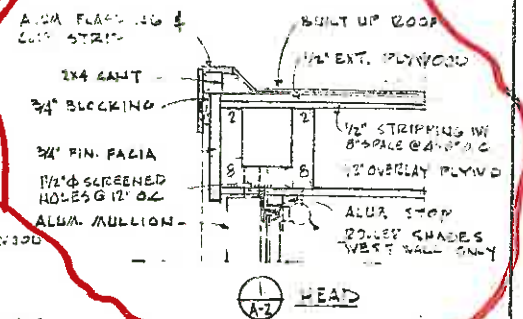 ALUM FLASHING &
STRIP
2X4 CANT
3/4" BLOCKING
3/4" FIN. FACIA
1 1/2"Φ SCREENED
HOLES @ 12" O.C
ALUM. MULLION
BUILT UP ROOF
1/2" EXT. PLYWOOD
1/2" STRIPPING W/
8" SPACE @ O.C
1/2" OVERLAY PLYWD
ALUM STOP
ROLLER SHADES
WEST WALL ONLY
2
2
8
8
1
A-2
HEAD